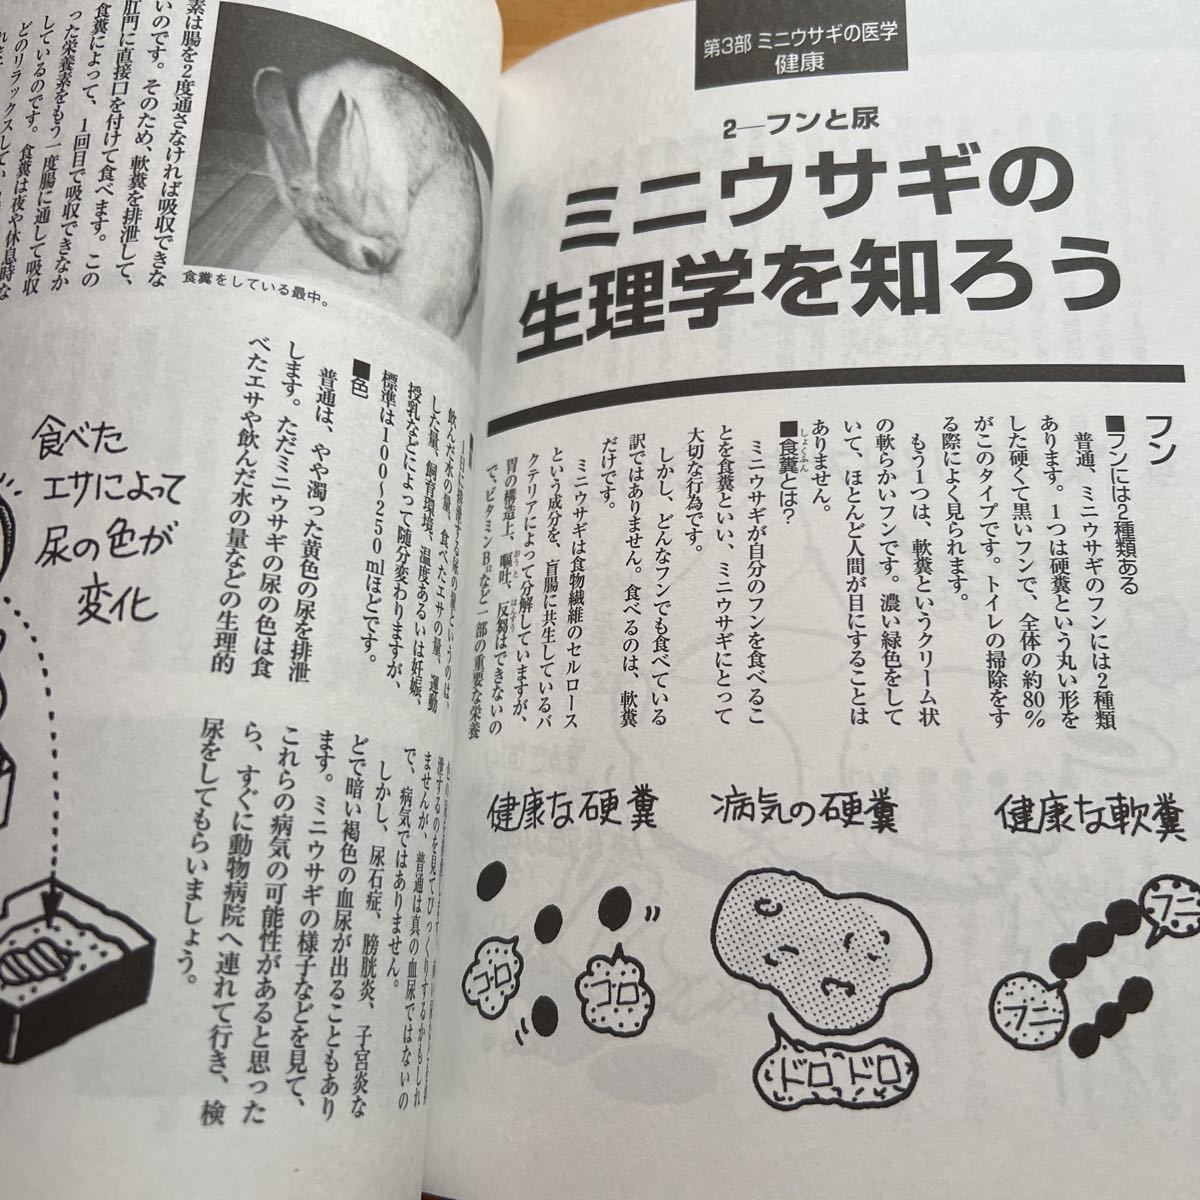 第3部 ミニウサギの医学
健康
2―フンと尿
ミニウサギの
生理学を知ろう
フン
■フンには2種類ある
普通、ミニウサギのフンには2種類
あります。1つは硬糞という丸い形を
した硬くて黒いフンで、全体の約80%
がこのタイプです。トイレの掃除をす
る際によく見られます。
もう1つは、軟糞というクリーム状
の軟らかいフンです。濃い緑色をして
いて、ほとんど人間が目にすることは
ありません。
■食糞とは?
しょくふん
ミニウサギが自分のフンを食べるこ
とを食糞といい、ミニウサギにとって
大切な行為です。
しかし、どんなフンでも食べている
訳ではありません。食べるのは、軟糞
だけです。
ミニウサギは食物繊維のセルロース
という成分を、盲腸に共生しているバ
クテリアによって分解していますが、
胃の構造上、嘔吐、反芻はできないの
おうと
はんすう
で、ビタミンB12など一部の重要な栄養
健康な硬糞
病気の硬糞
健康な軟糞
コロ
コロ
ドロドロ
フニ
フニ
素は腸を2度通さなければ吸収できな
いのです。そのため、軟糞を排泄して、
肛門に直接口を付けて食べます。この
食糞によって、1回目で吸収できなか
った栄養素をもう一度腸に通して吸収
しているのです。食糞は夜や休息時な
どのリラックスしてい
食糞をしている最中。
1日に排泄する尿の量というのは、
飲んだ水の量、食べたエサの量、運動
した量、飼育環境、温度あるいは妊娠、
授乳などによって随分変わりますが、
標準は100〜250mlほどです。
■色
普通は、やや濁った黄色の尿を排泄
します。ただミニウサギの尿の色は食
べたエサや飲んだ水の量などの生理的
泄するのを見てびっくりするかもしれ
ませんが、普通は真の血尿ではないの
で、病気ではありません。
しかし、尿石症、膀胱炎、子宮炎な
どで暗い褐色の血尿が出ることもあり
ます。ミニウサギの様子などを見て、
これらの病気の可能性があると思った
ら、すぐに動物病院へ連れて行き、検
尿をしてもらいましょう。
食べた
エサによって
尿の色が
変化